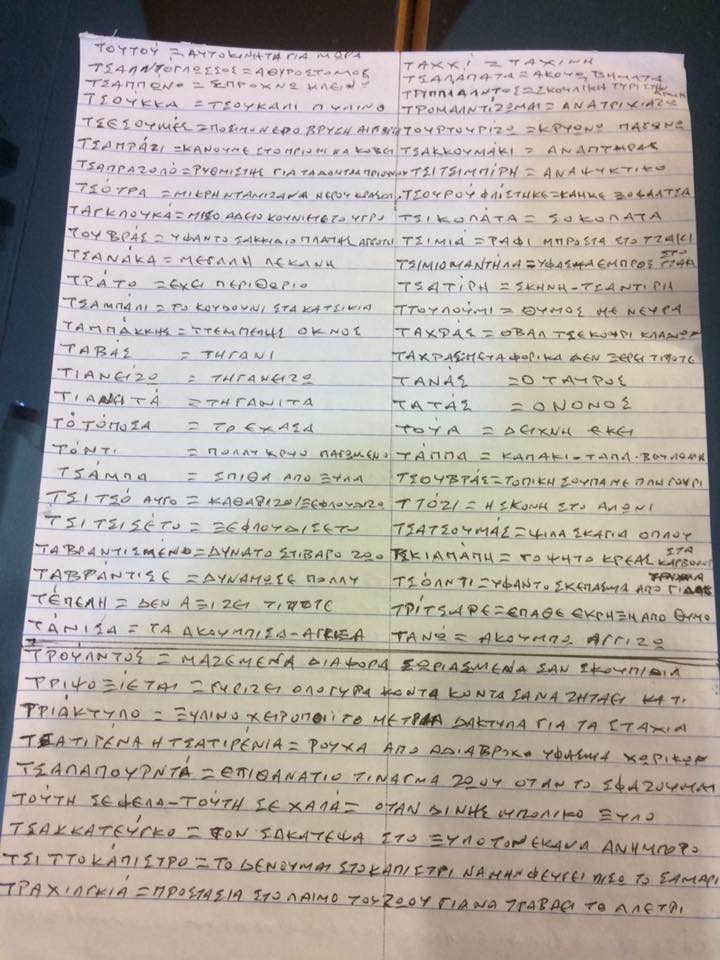 ΤΟΥΤΟΥ = ΑΥΤΟΚΙΝΗΤΑ ΓΙΑ ΜΩΡΑ
ΤΣΑΛΝΤΟΓΛΩΣΣΟΣ = ΑΘΥΡΟΣΤΟΜΟΣ
ΤΣΑΠΩΝΩ = ΣΠΡΟΧΝΩ ΚΛΕΙΝΩ
ΤΣΟΥΚΚΑ = ΤΣΟΥΚΑΛΙ ΠΥΛΙΝΟ
ΤΣΕΣΟΥΜΕΣ = ΠΟΣΙΜΟ ΝΕΡΟ ΒΡΥΣΗ
ΤΣΑΜΠΡΑΖΙ = ΚΑΝΟΥΜΕ ΣΤΟ ΠΡΙΟΝΙ ΝΑ ΚΟΒΕΙ
ΤΣΑΠΡΑΖΟΛΟ = ΡΥΘΜΙΣΤΗΣ ΓΙΑ ΤΑ ΔΟΝΤΙΑ
ΤΣΟΤΡΑ = ΜΙΚΡΗ ΝΤΑΜΙΖΑΝΑ ΝΕΡΟΥ ΚΡΑΣΙΟΥ
ΤΑΓΚΛΟΥΚΑ = ΜΙΣΟ ΑΔΕΙΟ ΚΟΥΝΙΕΤΕ ΤΟ ΥΓΡΟ
ΤΟΥΒΡΑΣ = ΥΦΑΝΤΟ ΣΑΚΚΙΔΙΟ ΠΛΑΤΗΣ
ΤΣΑΝΑΚΑ = ΜΕΓΑΛΗ ΛΕΚΑΝΗ
ΤΡΑΤΟ = ΕΧΕΙ ΠΕΡΙΘΩΡΙΟ
ΤΣΑΜΠΑΛΙ = ΤΟ ΚΟΥΔΟΥΝΙ ΣΤΑ ΚΑΤΣΙΚΙΑ
ΤΑΜΠΑΚΚΗΣ = ΤΤΕΜΠΕΛΗΣ ΟΚΝΟΣ
ΤΑΒΑΣ = ΤΗΓΑΝΙ
ΤΙΑΝΕΙΖΩ = ΤΗΓΑΝΕΙΖΩ
ΤΗΓΑΝΙΤΑ
ΤΟΤΟΠΟΣΑ = ΤΟ ΕΧΑΣΑ
ΤΟΝΤΙ = ΠΟΛΛΥ ΚΡΥΟ ΠΑΓΩΜΕΝΟ
ΤΣΑΜΠΑ = ΣΠΙΘΑ ΑΠΟ ΞΥΛΑ
ΤΣΙΤΣΟ ΑΥΓΟ = ΚΑΘΑΡΙΖΩ / ΞΕΦΛΟΥΔΙΖΩ
ΤΣΙΤΣΙΣΕΤΟ = ΞΕΦΛΟΥΔΙΣΕΤΟ
ΤΑΒΡΑΝΤΙΣΜΕΝΟ = ΔΥΝΑΤΟ ΣΤΙΒΑΡΟ ΖΩΟ
ΤΑΒΡΑΝΤΙΣΕ = ΔΥΝΑΜΩΣΕ ΠΟΛΛΥ
ΤΕΠΕΛΗ = ΔΕΝ ΑΞΙΖΕΙ ΤΙΠΟΤΕ
ΤΑΝΙΣΑ = ΤΑ ΑΚΟΥΜΠΙΣΑ-ΑΓΓΙΞΑ
ΤΑΧΧΙ = ΤΑΧΙΝΗ
ΤΣΑΛΑΠΑΤΑ = ΑΚΟΥΩ ΒΗΜΑΤΑ
ΤΡΟΜΑΛΝΤΙΖΩΜΑΙ = ΑΝΑΤΡΙΧΙΑΖΩ
ΤΟΥΡΤΟΥΡΙΖΩ = ΚΡΥΩΝΩ ΠΑΓΩΝΩ
ΤΣΑΚΚΟΥΜΑΚΙ = ΑΝΑΠΤΗΡΑΣ
ΤΣΙΤΣΙΜΠΙΡΗ = ΑΝΑΨΥΚΤΙΚΟ
ΤΣΟΥΡΟΥΦΛΙΣΤΗΚΕ = ΚΑΗΚΕ ΞΩΦΑΛΤΣΑ
ΤΣΙΚΟΛΑΤΑ = ΣΟΚΟΛΑΤΑ
ΤΣΙΜΙΑ = ΡΑΦΙ ΜΠΡΟΣΤΑ ΣΤΟ ΤΖΑΚΙ
ΤΣΙΜΙΟΜΑΝΤΗΛΑ = ΥΦΑΣΜΑ ΕΜΠΡΟΣ ΣΤΟ ΤΖΑΚΙ
ΤΣΑΤΙΡΗ = ΣΚΗΝΗ-ΤΣΑΝΤΙΡΙ
ΤΤΟΥΛΟΥΜΙ = ΘΥΜΟΣ ΜΕ ΝΕΥΡΑ
ΤΑΧΡΑΣ = ΟΒΑΛ ΤΣΕΚΟΥΡΙ ΚΛΑΔΩΝ
ΤΑΧΡΑΣ ΜΕΤΑΦΟΡΙΚΑ ΔΕΝ ΞΕΡΕΙ ΤΙΠΟΤΕ
ΤΑΝΑΣ = Ο ΤΑΥΡΟΣ
ΤΑΤΑΣ = Ο ΝΟΝΟΣ
ΤΟΥΑ = ΔΕΙΧΝΗ ΕΚΕΙ
ΤΑΠΠΑ = ΚΑΠΑΚΙ-ΤΑΠΑ
ΤΣΟΥΒΡΑΣ = ΤΟΠΙΚΗ ΣΟΥΠΑ ΜΕ ΠΛΗΓΟΥΡΙ
ΤΤΟΖΙ = Η ΣΚΟΝΗ ΣΤΟ ΑΛΩΝΙ
ΤΣΑΤΣΟΥΜΑΣ = ΨΙΛΑ ΣΚΑΓΙΑ ΟΠΛΟΥ
ΤΟ ΨΗΤΟ ΚΡΕΑΣ ΣΤΑ ΚΑΡΒΟΥΝΑ
ΤΣΟΛΝΤΙ = ΥΦΑΝΤΟ ΣΚΕΠΑΣΜΑ ΑΠΟ
ΤΡΙΤΣΑΡΕ = ΕΠΑΘΕ ΕΚΡΗΞΗ ΑΠΟ ΘΥΜΟ
ΤΑΝΩ = ΑΚΟΥΜΠΩ ΑΓΓΙΖΩ
ΤΡΟΥΛΝΤΟΣ = ΜΑΖΕΜΕΝΑ ΔΙΑΦΟΡΑ ΣΩΡΙΑΣΜΕΝΑ ΣΑΝ ΣΚΟΥΠΙΔΙΑ
ΤΡΙΨΟΞΙΕΤΑΙ = ΓΥΡΙΖΕΙ ΟΛΟΓΥΡΑ ΚΟΝΤΑ ΚΟΝΤΑ ΣΑ ΝΑ ΖΗΤΑΕΙ ΚΑΤΙ
ΤΡΙΑΚΤΥΛΟ = ΞΥΛΙΝΟ ΧΕΙΡΟΠΟΙΤΟ ΜΕ ΤΡΙΑ ΔΑΚΤΥΛΑ ΓΙΑ ΤΑ ΣΤΑΧΙΑ
ΤΣΑΤΙΡΕΝΑ Η ΤΣΑΤΙΡΕΝΙΑ = ΡΟΥΧΑ ΑΠΟ ΑΔΙΑΒΡΟΚΟ ΥΦΑΣΜΑ ΧΩΡΙΚΩΝ
ΤΣΑΠΑΠΟΥΡΝΤΑ = ΕΠΙΘΑΝΑΤΙΟ ΤΙΝΑΓΜΑ ΖΩΟΥ ΟΤΑΝ ΤΟ ΣΦΑΖΟΥΜΑΙ
ΤΟΥΤΗ ΣΕ ΦΕΛΑ-ΤΟΥΤΗ ΣΕ ΧΑΛΑ = ΟΤΑΝ ΔΙΝΗΣ ΥΠΟΛΙΚΟ ΞΥΛΟ
ΤΣΑΚΚΑΤΕΥΓΚΟ = ΤΟΝ ΣΑΚΑΤΕΨΑ ΣΤΟ ΞΥΛΟ ΤΟΝ ΕΚΑΝΑ ΑΝΗΜΠΟΡΟ
ΤΣΙΤΤΟΚΑΠΙΣΤΡΟ = ΤΟ ΔΕΝΟΥΜΑΙ ΣΤΟ ΚΑΠΙΣΤΡΙ ΝΑ ΜΗΝ ΦΕΥΓΕΙ ΠΙΣΩ ΤΟ ΣΑΜΑΡΙ
ΤΡΑΧΙΛΓΚΙΑ = ΠΡΟΣΤΑΣΙΑ ΣΤΟ ΛΑΙΜΟ ΤΟΥ ΖΩΟΥ ΓΙΑ ΝΑ ΤΡΑΒΑΕΙ ΤΟ ΑΛΕΤΡΙ